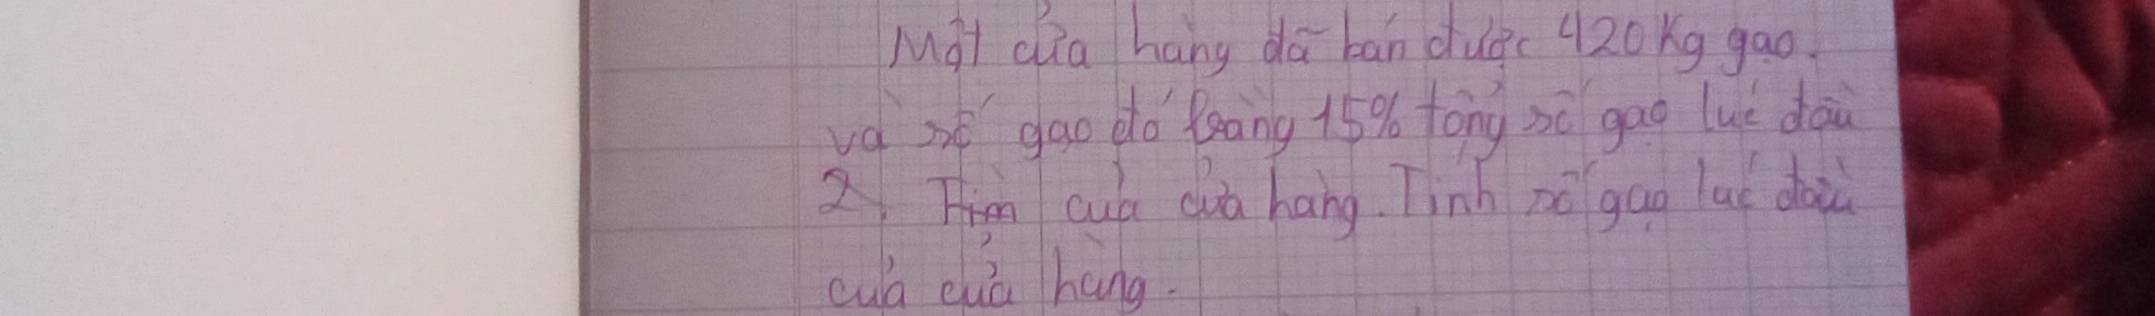 Một cửa hàng đã bán được 420 kg gạo.
và số gạo đó bằng 15% tổng số gạo lúc đầu
2. Tìm của cửa hàng. Tính số gạo lúc đầu
của cửa hàng.